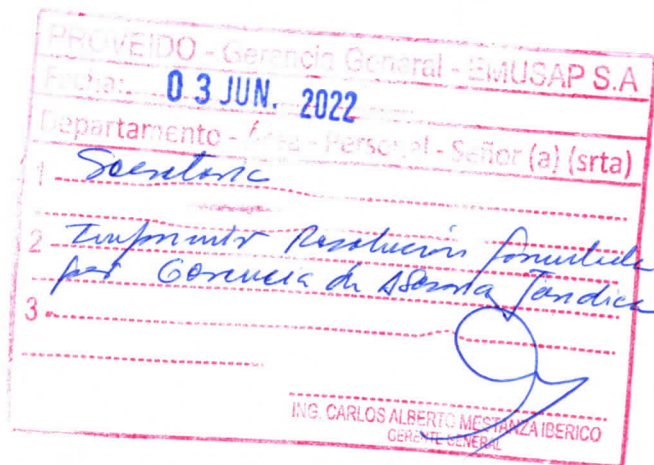 PROVEIDO - Gerencia General - EMUSAP S.A
Fecha: 03 JUN. 2022
Departamento - Área - Personal - Señor (a) (srta)
1 Secretaria
2 Imprimir Resolución formulada
por Gerencia de Asesoria Jurídica
3
ING. CARLOS ALBERTO MESTANZA IBERICO
GERENTE GENERAL